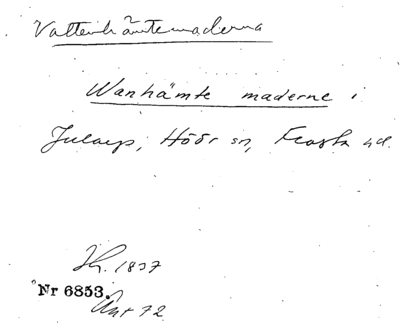 Vattenhämtemaderna
Wanhämte maderne i
Jularp, Höör sn, Frosta hd.
Sk. 1837
Nr 6853.
Ant 72